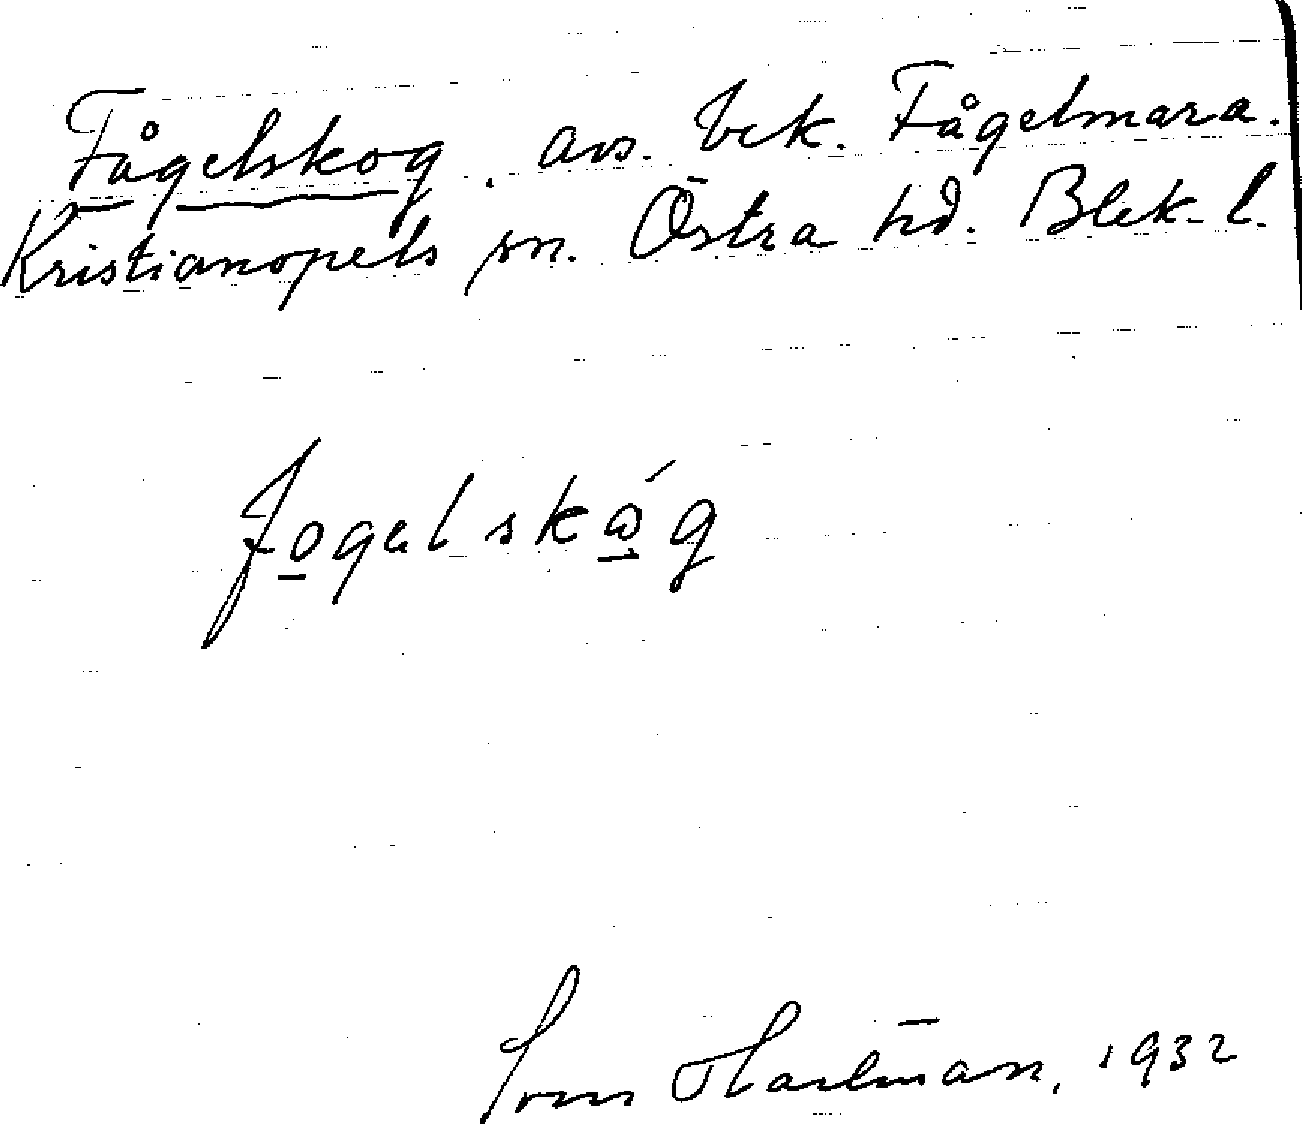 Fågelskog, avs. bek. Fågelmara.
Kristianopels sn. Östra hd. Blek. l.
fogelskóg
Hartman, 1932